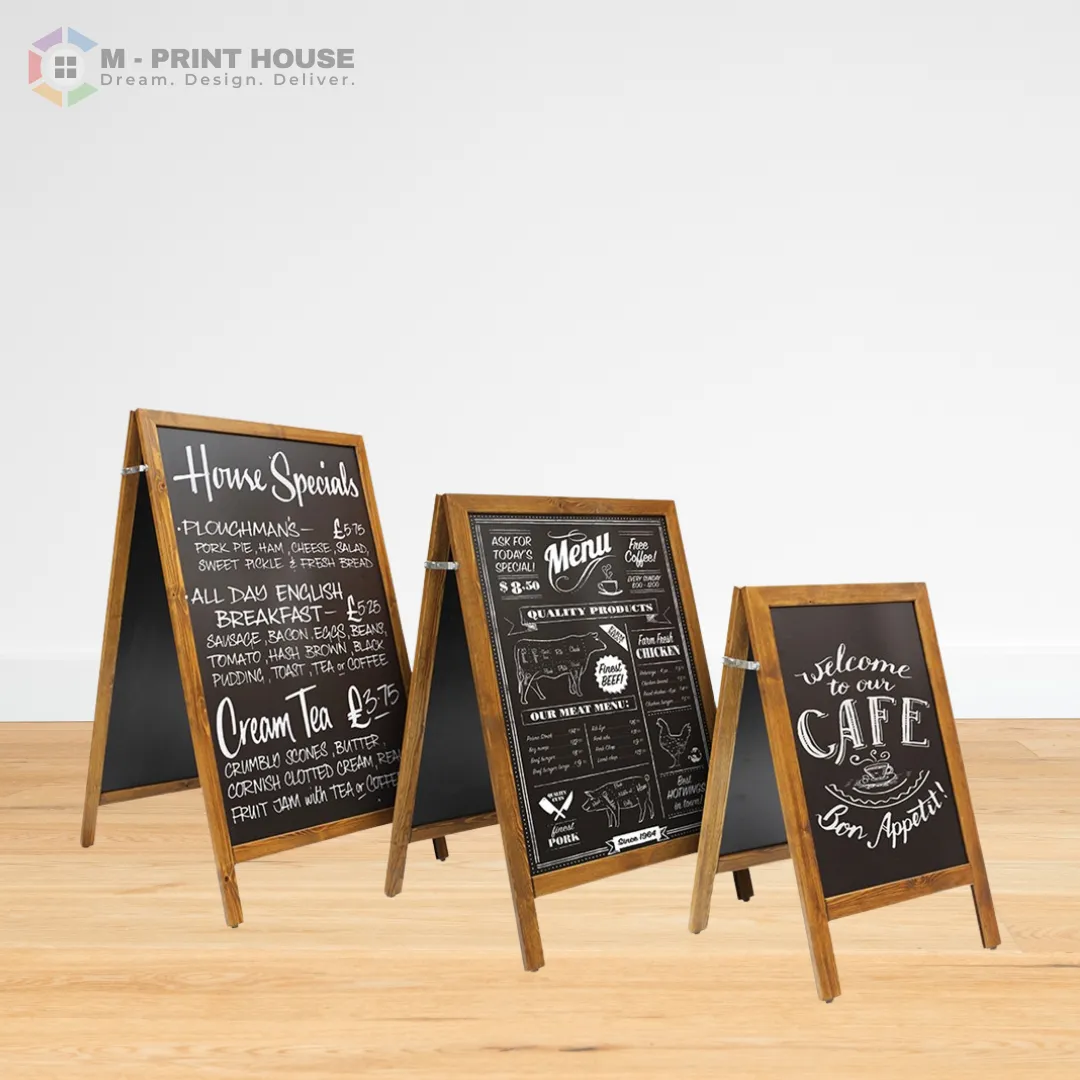 M - PRINT HOUSE
Dream. Design. Deliver.
House Specials
·PLOUGHMAN'S— £5.75
PORK PIE, HAM, CHEESE, SALAD,
SWEET PICKLE & FRESH BREAD
·ALL DAY ENGLISH
BREAKFAST— £5.25
SAUSAGE, BACON, EGGS, BEANS,
TOMATO, HASH BROWN, BLACK
PUDDING, TOAST, TEA or COFFEE
Cream Tea £3.75
CRUMBLY SCONES, BUTTER,
CORNISH CLOTTED CREAM,
FRUIT JAM with TEA or COFFEE
ASK FOR
TODAY'S
SPECIAL!
$8.50
Menu
Free
Coffee!
EVERY SUNDAY
QUALITY PRODUCTS
Finest
BEEF!
Farm Fresh
CHICKEN
OUR MEAT MENU:
QUALITY
CUTS
finest
PORK
Since 1964
Best
HOTWINGS
in town!
welcome
to our
CAFE
Bon Appetit!